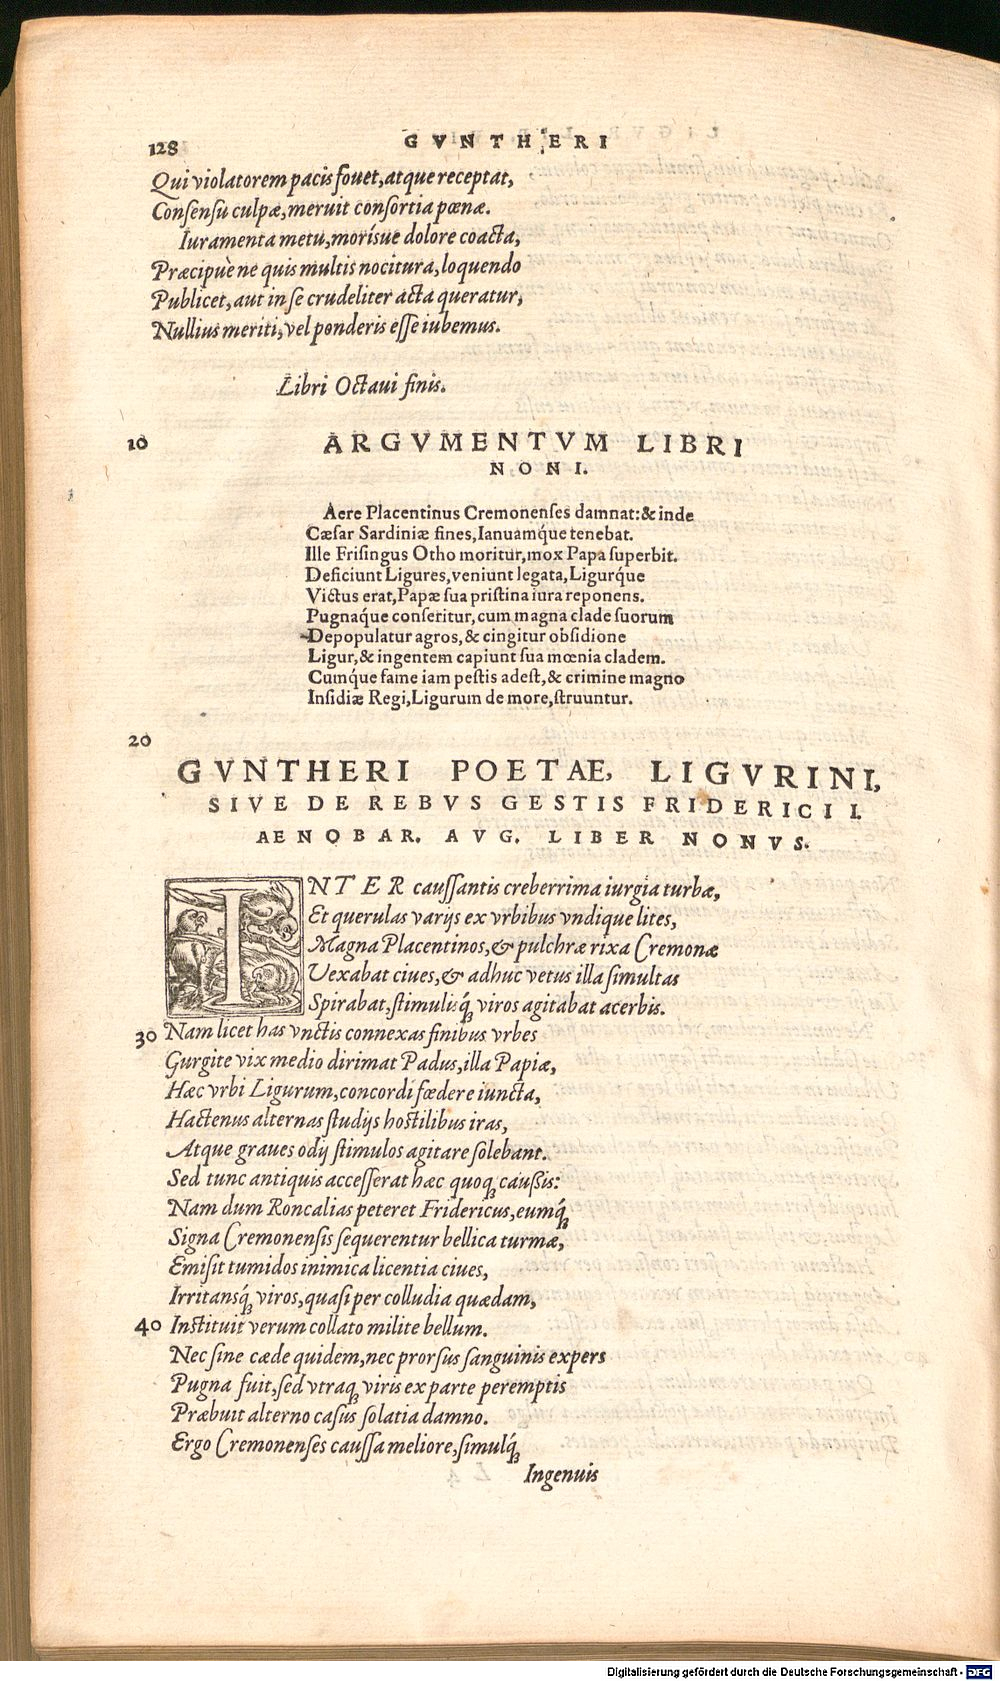 128 GVNTHERI
Qui violatorem pacis fouet, atque receptat,
Consensu culpæ, meruit consortia pœnæ.
Iuramenta metu, morisue dolore coacta,
Præcipuè ne quis multis nocitura, loquendo
Publicet, aut in se crudeliter acta queratur,
Nullius meriti, vel ponderis esse iubemus.
Libri Octaui finis.
10 ARGVMENTVM LIBRI
NONI.
Aere Placentinus Cremonenses damnat: & inde
Cæsar Sardiniæ fines, Ianuamq́ue tenebat.
Ille Frisingus Otho moritur, mox Papa superbit.
Deficiunt Ligures, veniunt legata, Ligurq́ue
Victus erat, Papæ sua pristina iura reponens.
Pugnaq́ue conseritur, cum magna clade suorum
Depopulatur agros, & cingitur obsidione
Ligur, & ingentem capiunt sua mœnia cladem.
Cumq́ue fame iam pestis adest, & crimine magno
Insidiæ Regi, Ligurum de more, struuntur.
20
GVNTHERI POETAE, LIGVRINI,
SIVE DE REBVS GESTIS FRIDERICI I.
AENOBAR. AVG. LIBER NONVS.
INTER caussantis creberrima iurgia turbæ,
Et querulas varijs ex vrbibus vndique lites,
Magna Placentinos, & pulchræ rixa Cremonæ
Vexabat ciues, & adhuc vetus illa simultas
Spirabat, stimulisq́; viros agitabat acerbis.
30 Nam licet has vnctis connexas finibus vrbes
Gurgite vix medio dirimat Padus, illa Papiæ,
Hæc vrbi Ligurum, concordi fœdere iuncta,
Hactenus alternas studijs hostilibus iras,
Atque graues odij stimulos agitare solebant.
Sed tunc antiquis accesserat hæc quoq; caussis:
Nam dum Roncalias peteret Fridericus, eumq́;
Signa Cremonensis sequerentur bellica turmæ,
Emisit tumidos inimica licentia ciues,
Irritansq́; viros, quasi per colludia quædam,
40 Instituit verum collato milite bellum.
Nec sine cæde quidem, nec prorsus sanguinis expers
Pugna fuit, sed vtraq; viris ex parte peremptis
Præbuit alterno casus solatia damno.
Ergo Cremonenses caussa meliore, simulq́;
Ingenuis
Digitalisierung gefördert durch die Deutsche Forschungsgemeinschaft - DFG